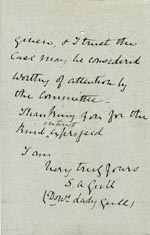 given, & I trust the
Case may be considered
worthy of attention by
the Committee.
Thanking you for the
interest
kind expressed
I am
Very truly yours
S. A Gull
(Dowr. Lady Gull)